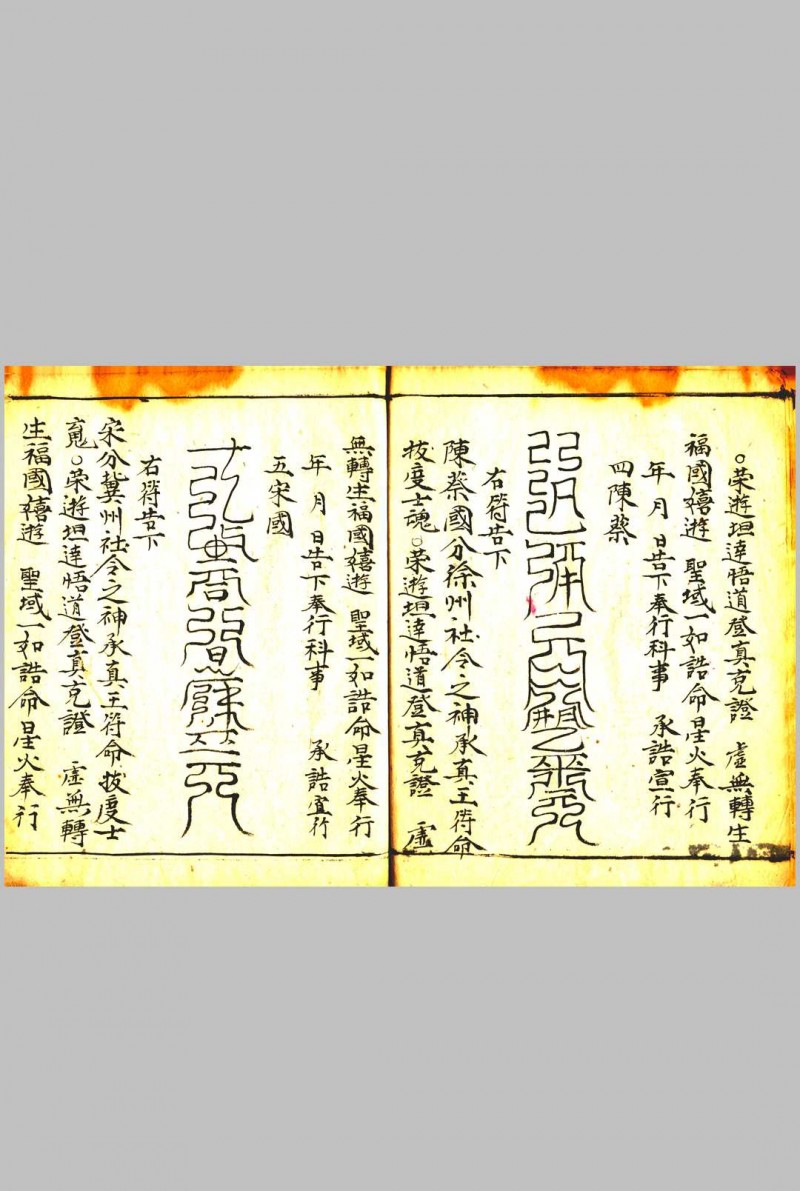 ○荣遊坦達悟道登真克證 虛無轉生
福國嬉遊 聖域一如誥命星火奉行
年 月 日告下奉行科事 承誥宣行
四陳蔡
右符告下
陳蔡國分徐州社令之神承真王符命
拔度士魂○荣遊坦達悟道登真克證 虛
無轉生福國嬉遊 聖域一如誥命星火奉行
年 月 日告下奉行科事 承誥宣行
五宋國
右符告下
宋分冀州社令之神承真王符命拔度士
䰟○荣遊坦達悟道登真克證 虛無轉
生福國嬉遊 聖域一如誥命星火奉行